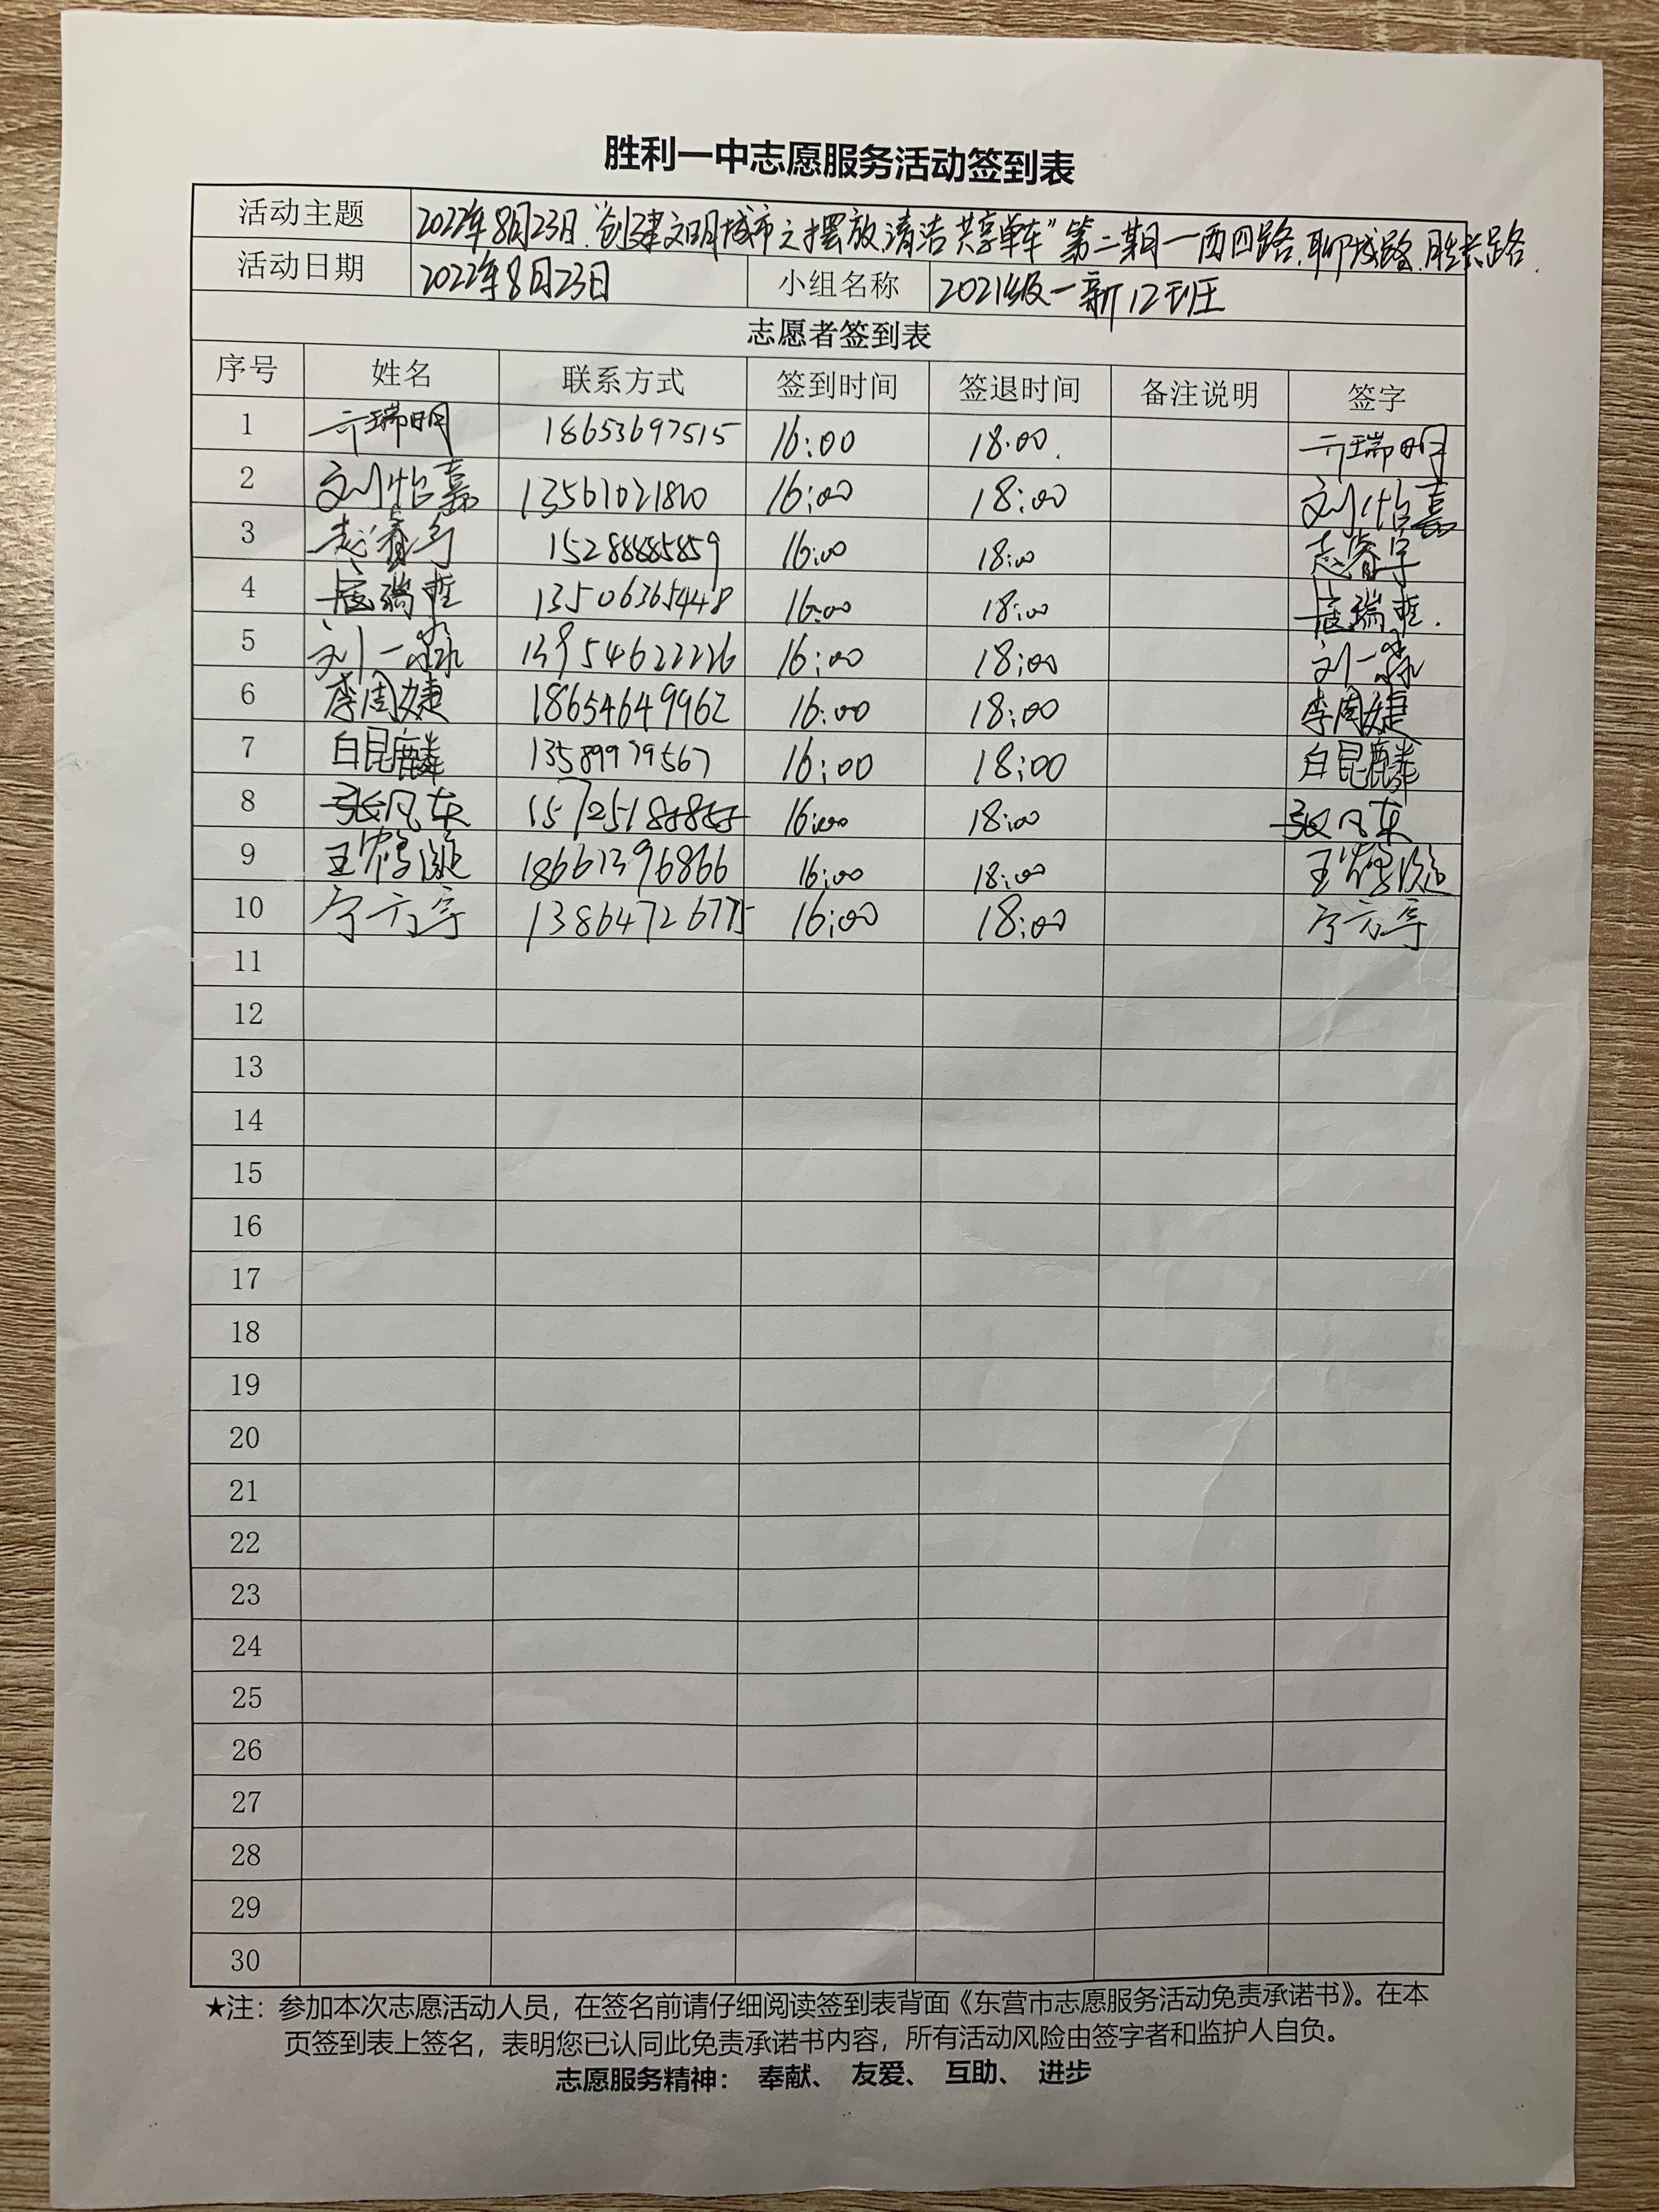 胜利一中志愿服务活动签到表
活动主题 2022年8月23日.“创建文明城市之摆放.清洁共享单车”第二期—西四路.聊城路.胜兴路.
活动日期 2022年8月23日 小组名称 2021级—新12班
志愿者签到表
序号 姓名 联系方式 签到时间 签退时间 备注说明 签字
1 亓瑞明 18653697515 16:00 18:00. 亓瑞明
2 刘怡嘉 13561021810 16:00 18:00 刘怡嘉
3 15288885859 16:00 18:00
4 寇瑞哲 13506365448 16:00 18:00 寇瑞哲.
5 刘一淼 13954622226 16:00 18:00 刘一淼
6 李周婕 18654649962 16:00 18:00 李周婕
7 白昆麟 13589979567 16:00 18:00 白昆麟
8 张凡东 16:00 18:00 张凡东
9 18661396866 16:00 18:00
10 16:00 18:00
11
12
13
14
15
16
17
18
19
20
21
22
23
24
25
26
27
28
29
30
★注：参加本次志愿活动人员，在签名前请仔细阅读签到表背面《东营市志愿服务活动免责承诺书》。在本
页签到表上签名，表明您已认同此免责承诺书内容，所有活动风险由签字者和监护人自负。
志愿服务精神： 奉献、 友爱、 互助、 进步